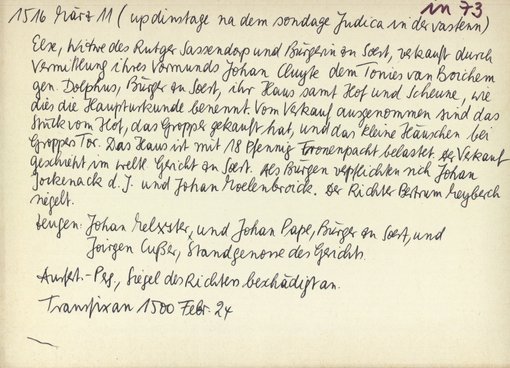 m 73
1516 März 11 (up dinstage na dem sondage Judica in der vasten)
Else, Witwe des Rutger Sassendorp und Bürgerin zu Soest, verkauft durch
Vermittlung ihres Vormunds Johan Cluyte dem Tonies van Borchem
gen. Dolphus, Bürger zu Soest, ihr Haus samt Hof und Scheune, wie
dies die Haupturkunde benennt. Vom Verkauf ausgenommen sind das
Stück vom Hof, das Gropper gekauft hat, und das kleine Häuschen bei
Groppers Tor. Das Haus ist mit 18 Pfennig Cronenpacht belastet. Der Verkauf
geschieht im weltl. Gericht zu Soest. Als Bürgen verpflichten sich Johan
Jockenack d. J. und Johan Moelenbroick. Der Richter Bertram Meyberch
siegelt.
Zeugen: Johan und Johan Pape, Bürger zu Soest, und
Jörgen Cußer, Standgenosse des Gerichts.
Ausf.-Perg., Siegel des Richters beschädigt an.
Transfix an 1500 Febr. 24